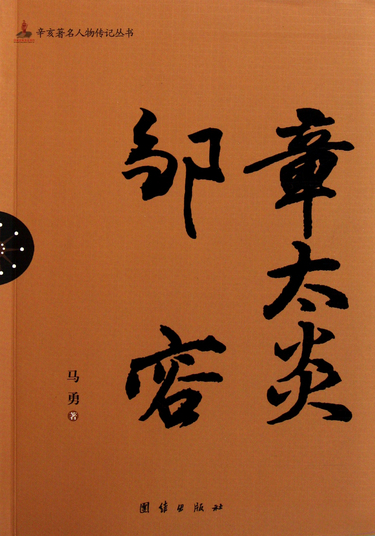 辛亥著名人物传记丛书
章太炎
邹容
马勇
著
团结出版社